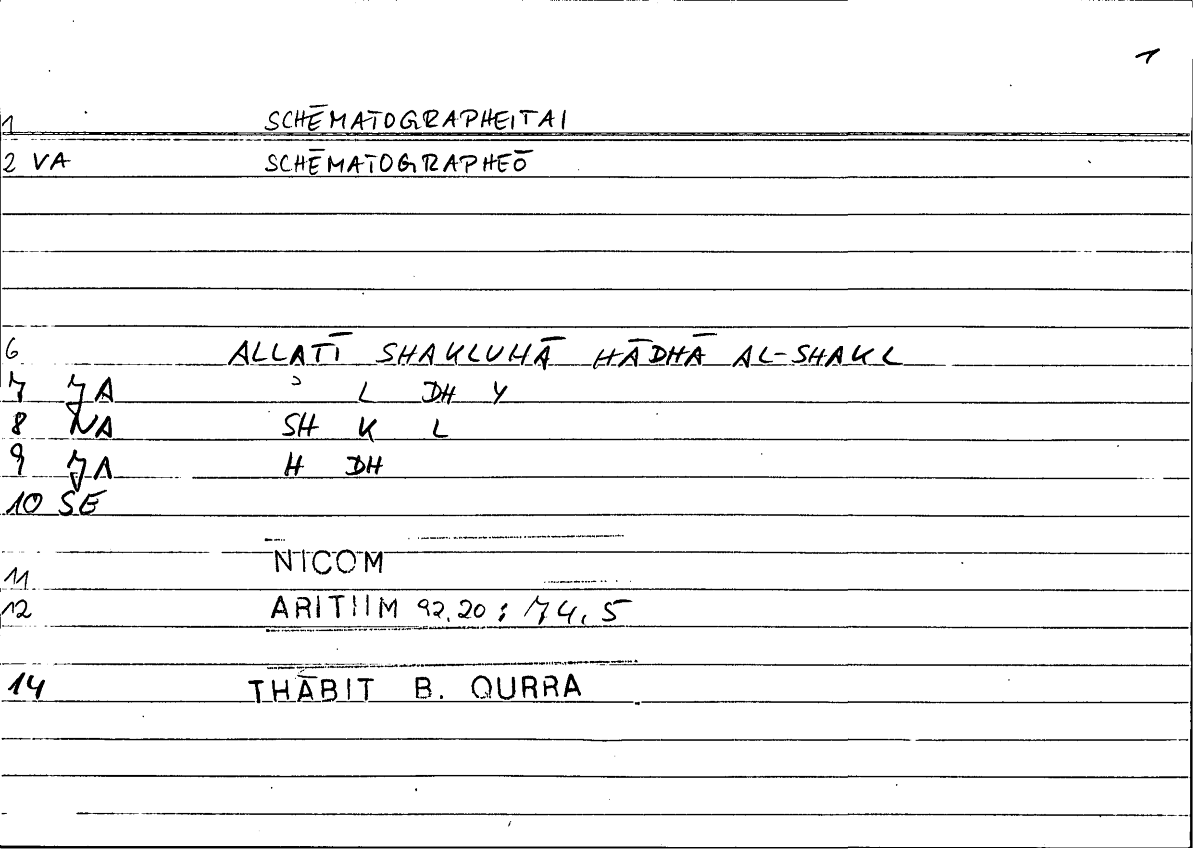 1
1 SCHĒMATOGRAPHEITAI
2 VA SCHĒMATOGRAPHEŌ
6 ALLATĪ SHAKLUHĀ HĀDHĀ AL-SHAKL
7 7A ʾ L DH Y
8 NA SH K L
9 7A H DH
10 SE
11 NICOM
12 ARITHM 92,20 : 74,5
14 THĀBIT B. QURRA